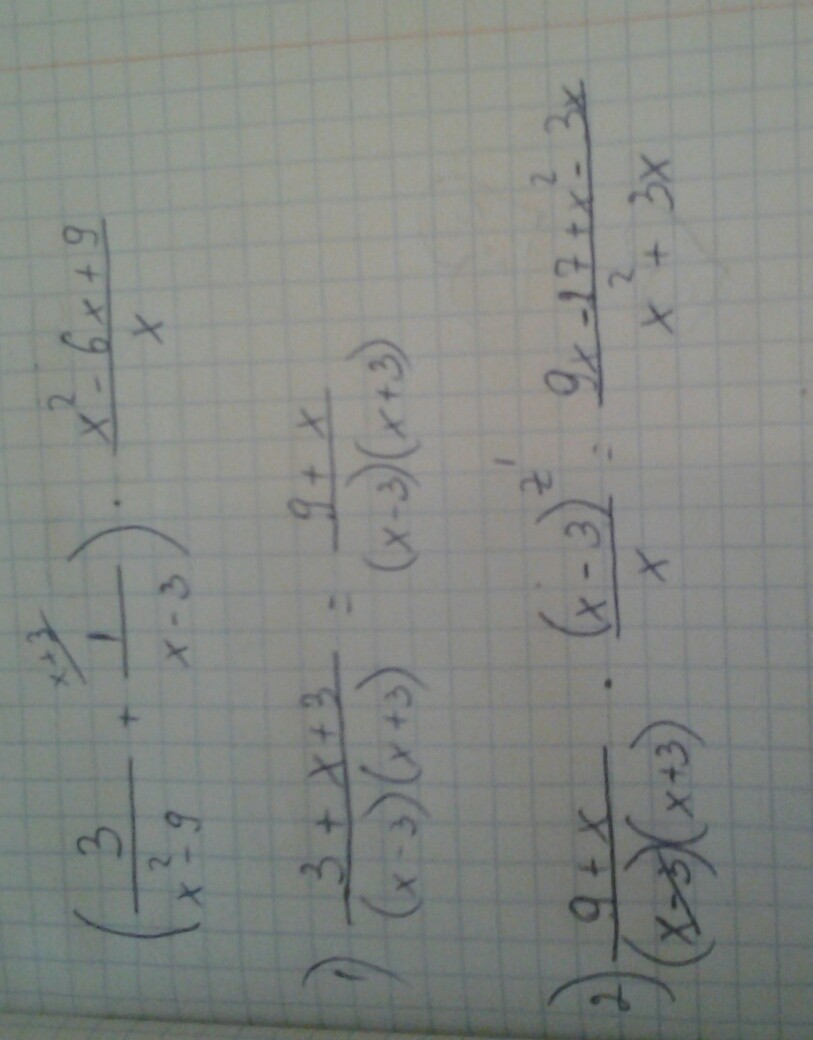 (3/(x²-9) + 1/(x-3)) · (x²-6x+9)/x
x+3
1) (3+x+3)/((x-3)(x+3)) = (9+x)/((x-3)(x+3))
2) (9+x)/((x-3)(x+3)) · (x-3)²/x = (9x-27+x²-3x)/(x²+3x)
1